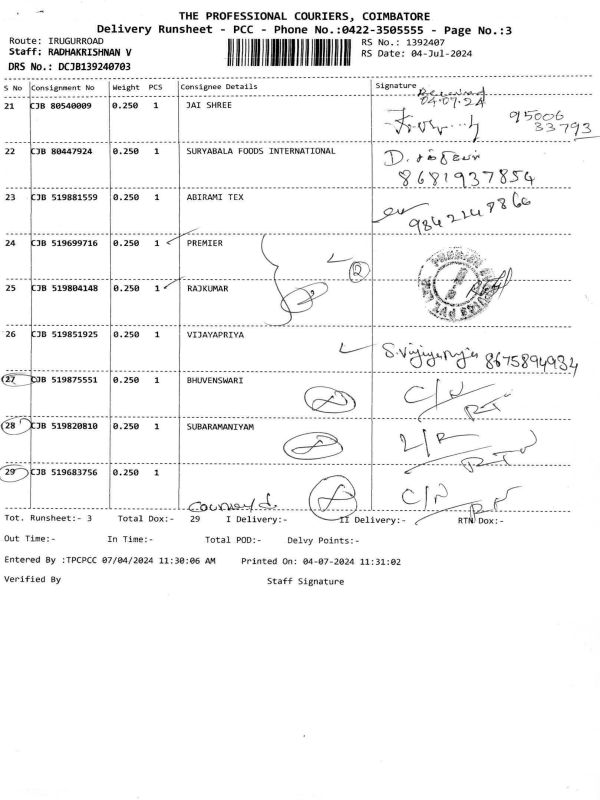 THE PROFESSIONAL COURIERS, COIMBATORE
Delivery Runsheet - PCC - Phone No.:0422-3505555 - Page No.:3
Route: IRUGURROAD RS No.: 1392407
Staff: RADHAKRISHNAN V RS Date: 04-Jul-2024
DRS No.: DCJB139240703
S No Consignment No Weight PCS Consignee Details Signature
Received
04.07.24
21 CJB 80540009 0.250 1 JAI SHREE 95006
33793
22 CJB 80447924 0.250 1 SURYABALA FOODS INTERNATIONAL D.
8681937854
23 CJB 519881559 0.250 1 ABIRAMI TEX
9842247866
24 CJB 519699716 0.250 1 PREMIER
25 CJB 519804148 0.250 1 RAJKUMAR
26 CJB 519851925 0.250 1 VIJAYAPRIYA
S.Vijiyapriya 8675894984
27 CJB 519875551 0.250 1 BHUVENSWARI C/N
RTN
28 CJB 519820810 0.250 1 SUBARAMANIYAM L/R
RTN
29 CJB 519683756 0.250 1 C/N
RN
Tot. Runsheet:- 3 Total Dox:- 29 I Delivery:- II Delivery:- RTN Dox:-
Out Time:- In Time:- Total POD:- Delvy Points:-
Entered By :TPCPCC 07/04/2024 11:30:06 AM Printed On: 04-07-2024 11:31:02
Verified By Staff Signature